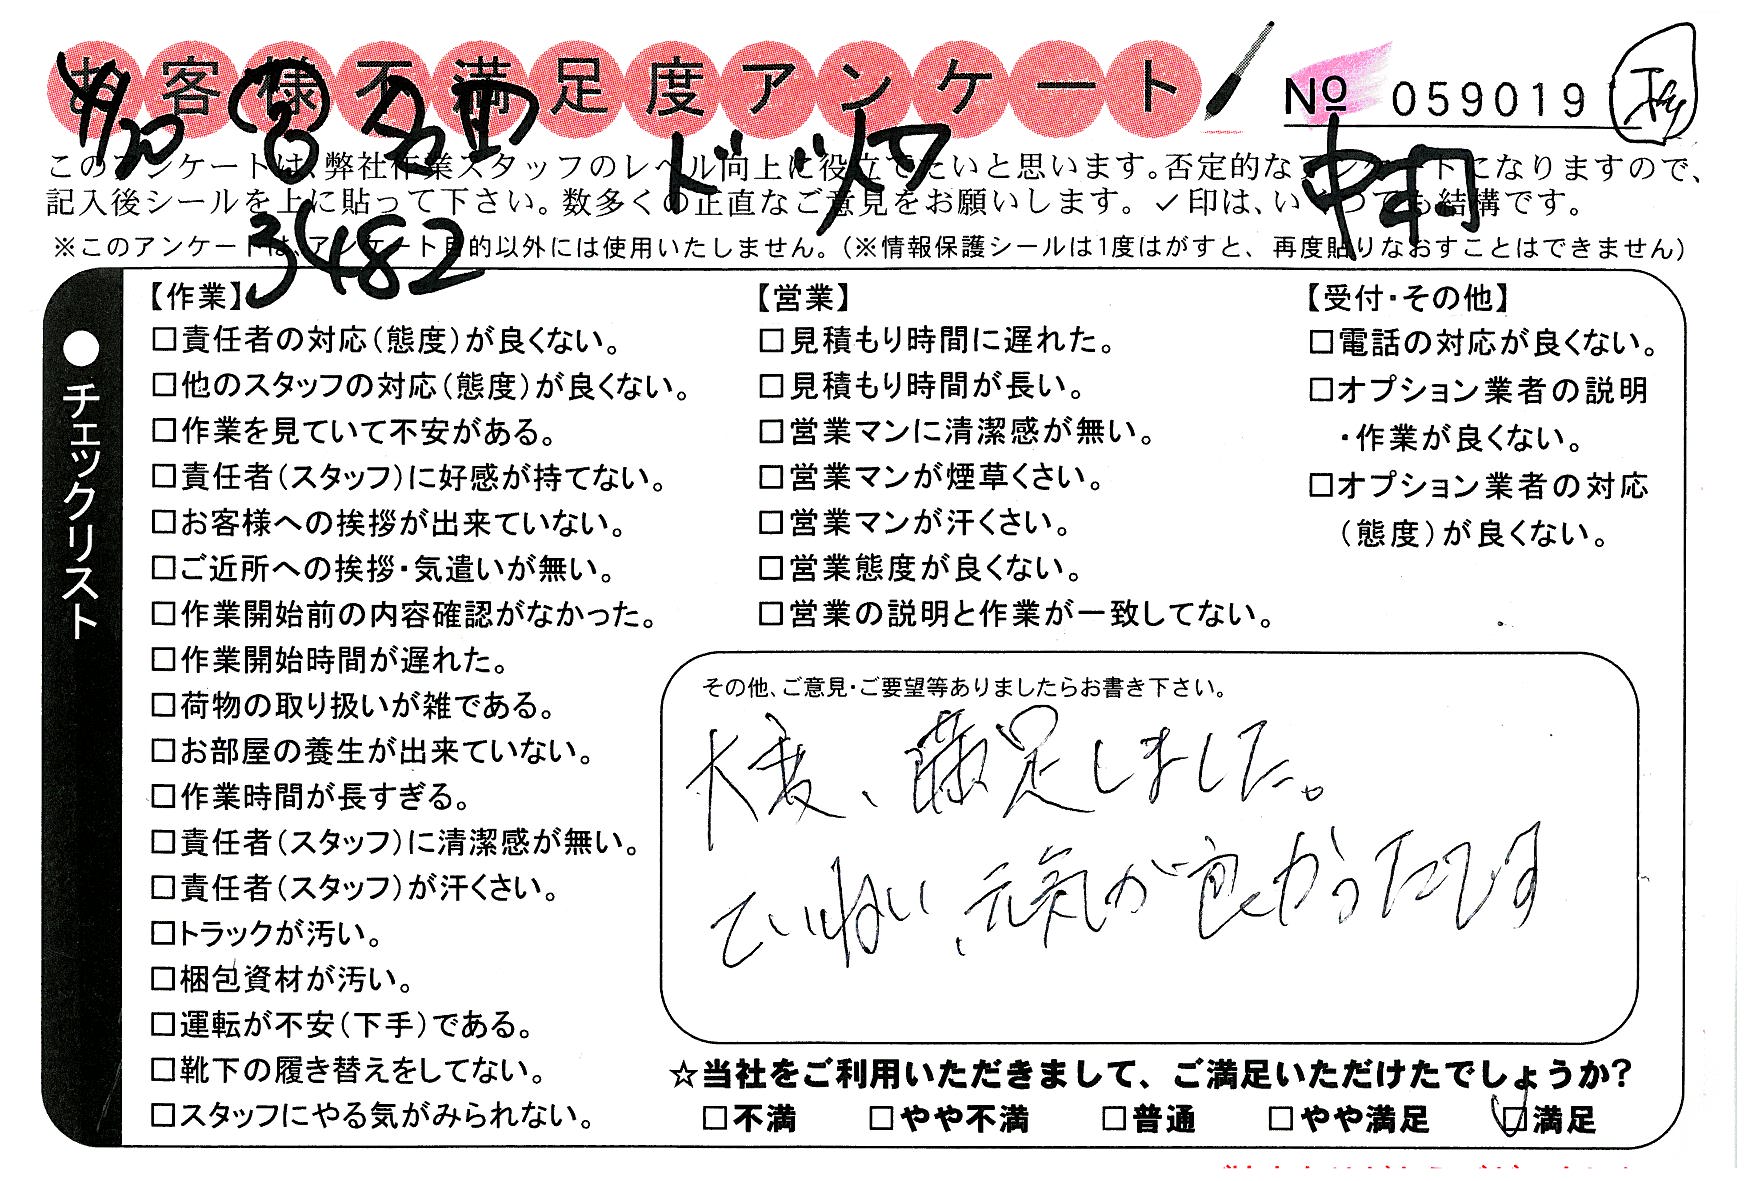 お客様不満足度アンケート
No 059019
4/20
ドツワ
中村
3482
このアンケートは、弊社作業スタッフのレベル向上に役立てたいと思います。否定的なアンケートになりますので、
記入後シールを上に貼って下さい。数多くの正直なご意見をお願いします。✓印は、いくつでも結構です。
※このアンケートは、アンケート目的以外には使用いたしません。(※情報保護シールは1度はがすと、再度貼りなおすことはできません)
●チェックリスト
【作業】
□責任者の対応(態度)が良くない。
□他のスタッフの対応(態度)が良くない。
□作業を見ていて不安がある。
□責任者(スタッフ)に好感が持てない。
□お客様への挨拶が出来ていない。
□ご近所への挨拶・気遣いが無い。
□作業開始前の内容確認がなかった。
□作業開始時間が遅れた。
□荷物の取り扱いが雑である。
□お部屋の養生が出来ていない。
□作業時間が長すぎる。
□責任者(スタッフ)に清潔感が無い。
□責任者(スタッフ)が汗くさい。
□トラックが汚い。
□梱包資材が汚い。
□運転が不安(下手)である。
□靴下の履き替えをしてない。
□スタッフにやる気がみられない。
【営業】
□見積もり時間に遅れた。
□見積もり時間が長い。
□営業マンに清潔感が無い。
□営業マンが煙草くさい。
□営業マンが汗くさい。
□営業態度が良くない。
□営業の説明と作業が一致してない。
【受付・その他】
□電話の対応が良くない。
□オプション業者の説明
・作業が良くない。
□オプション業者の対応
(態度)が良くない。
その他、ご意見・ご要望等ありましたらお書き下さい。
大変、満足しました。
ていねい、元気が良かったです
☆当社をご利用いただきまして、ご満足いただけたでしょうか?
□不満 □やや不満 □普通 □やや満足 ☑満足